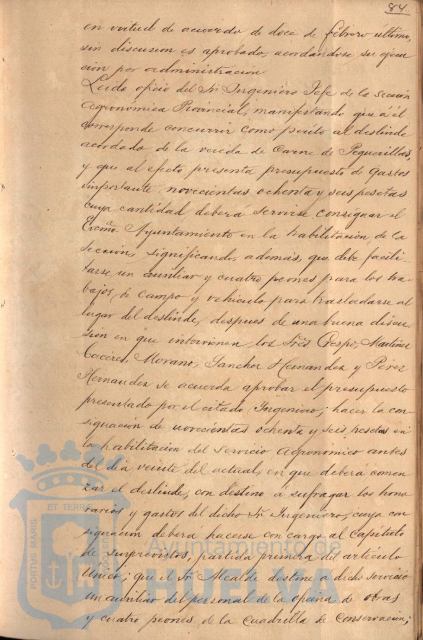 84
en virtud de acuerdo de doce de febrero último,
sin discusion es aprobado, acordandose su ejecu
cion por administracion
Leido oficio del Sr. Ingeniero Jefe de la Sección
Agronómica Provincial, manifestando que á él
corresponde concurrir como perito al deslinde
acordado de la vereda de Carne de Peguerillas,
y que al efecto presenta presupuesto de gastos
importante novecientas ochenta y seis pesetas
cuya cantidad deberá servirse consignar el
Excmo. Ayuntamiento en la habilitación de la
Sección, significando, además, que debe facili-
tarse un auxiliar y cuatro peones para los tra-
bajos de campo y vehiculo para trasladarse al
lugar del deslinde, despues de una buena discu
sión en que intervienen los Sres Crespo, Martinez
Caceres, Morano, Sanchez Hernandez y Perez
Hernandez se acuerda aprobar el presupuesto
presentado por el citado Ingeniero; hacer la con
signacion de novecientas ochenta y seis pesetas en
la habilitacion del servicio Agronomico antes
del dia veinte del actual, en que deberá comen
zar el deslinde, con destino a sufragar los hono
rarios y gastos del dicho Sr. Ingeniero, cuya con
signacion deberá hacerse con cargo al Capitulo
de Imprevistos, partida primera del articulo
Unico; que el Sr. Alcalde destine a dicho servicio
un auxiliar del personal de la oficina de obras
y cuatro peones, de la Cuadrilla de Conservacion;
PORTUS MARIS
ET TERRÆ
Ayuntamiento de